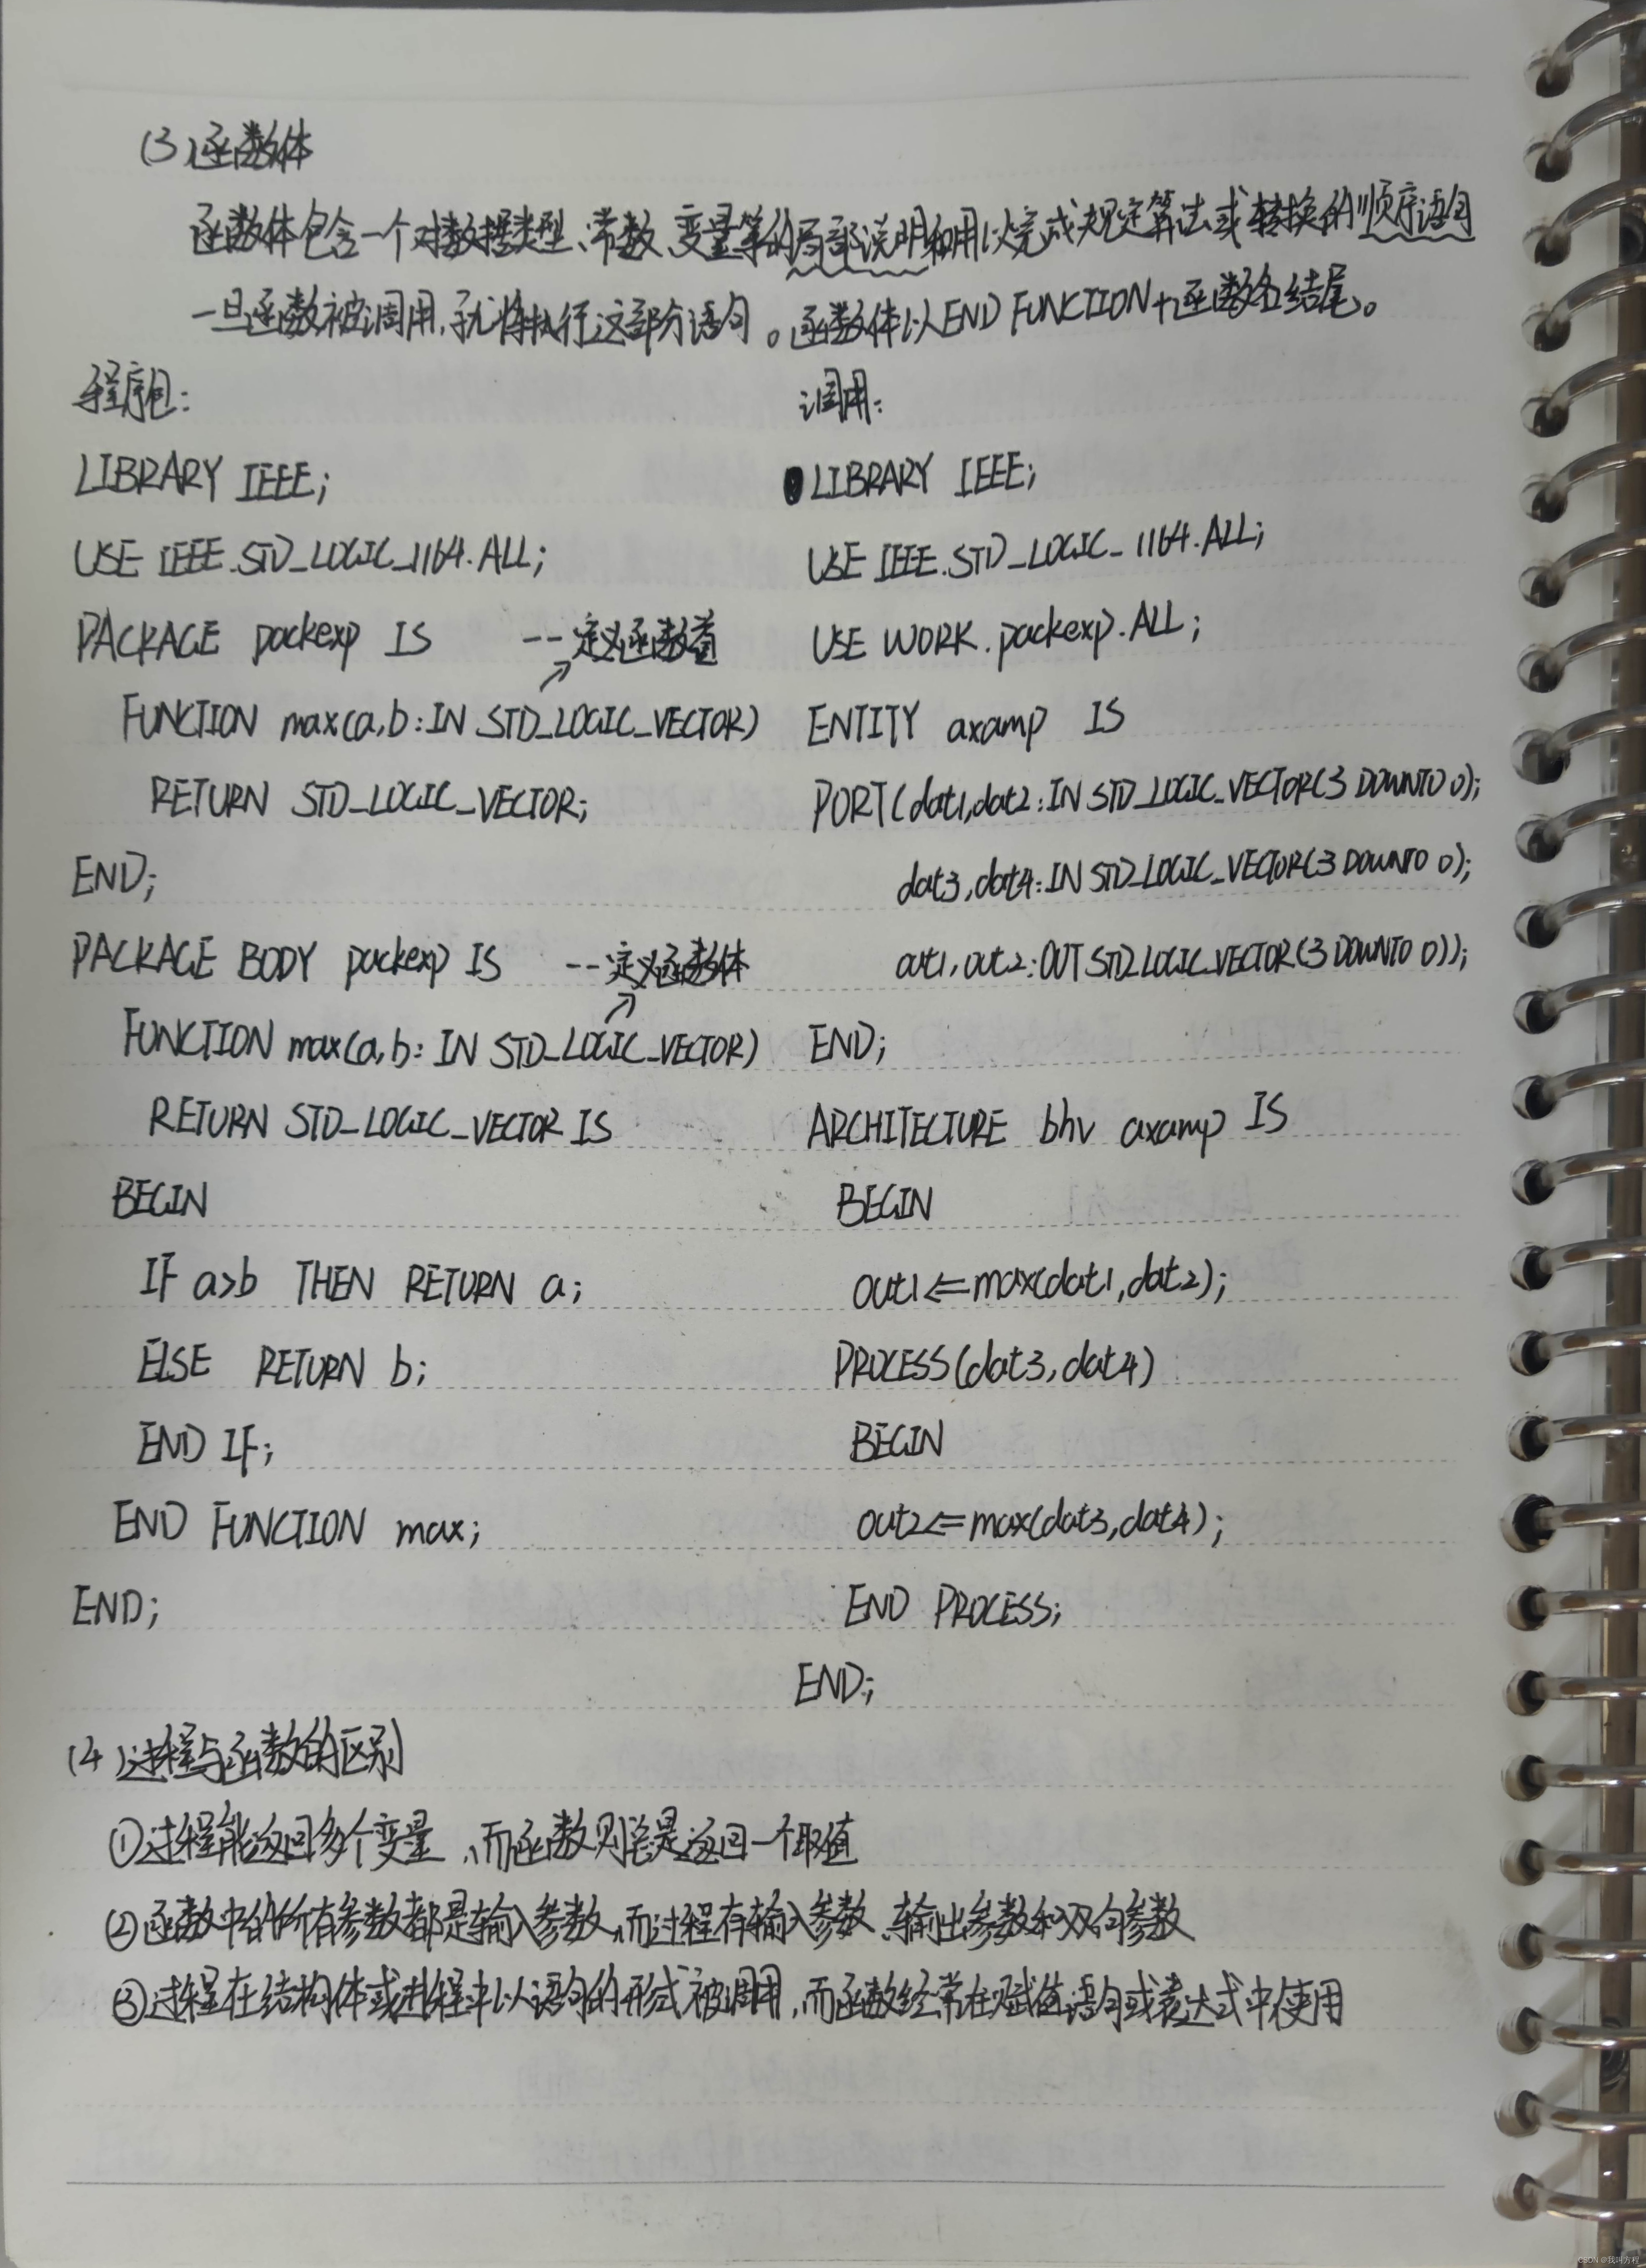 (3)函数体
函数体包含一个对数据类型、常数、变量等的局部说明和用以完成规定算法或转换的顺序语句
一旦函数被调用,就将执行这部分语句。函数体以END FUNCTION+函数名结尾。
程序包:
LIBRARY IEEE;
USE IEEE.STD_LOGIC_1164.ALL;
PACKAGE packexp IS --定义函数首
FUNCTION max(a,b:IN STD_LOGIC_VECTOR)
RETURN STD_LOGIC_VECTOR;
END;
PACKAGE BODY packexp IS --定义函数体
FUNCTION max(a,b: IN STD_LOGIC_VECTOR)
RETURN STD_LOGIC_VECTOR IS
BEGIN
IF a>b THEN RETURN a;
ELSE RETURN b;
END IF;
END FUNCTION max;
END;
调用:
LIBRARY IEEE;
USE IEEE.STD_LOGIC_1164.ALL;
USE WORK.packexp.ALL;
ENTITY axamp IS
PORT(dat1,dat2:IN STD_LOGIC_VECTOR(3 DOWNTO 0);
dat3,dat4:IN STD_LOGIC_VECTOR(3 DOWNTO 0);
out1,out2:OUT STD_LOGIC_VECTOR(3 DOWNTO 0));
END;
ARCHITECTURE bhv axamp IS
BEGIN
out1<=max(dat1,dat2);
PROCESS(dat3,dat4)
BEGIN
out2<=max(dat3,dat4);
END PROCESS;
END;
(4)过程与函数的区别
①过程能返回多个变量,而函数则总是返回一个取值
②函数中的所有参数都是输入参数,而过程有输入参数、输出参数和双向参数
③过程在结构体或进程中以语句的形式被调用,而函数经常在赋值语句或表达式中使用
CSDN @我叫方可